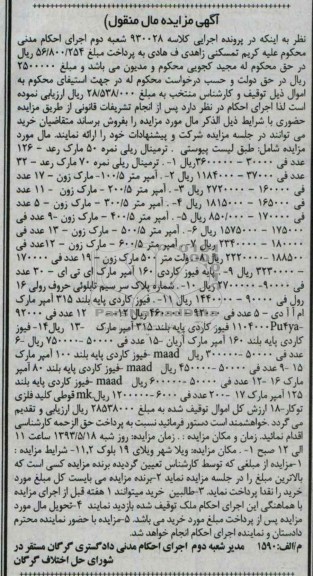 آگهی مزایده مال منقول)
نظر به اینکه در پرونده اجرایی کلاسه ۹۳۰۰۲۸ شعبه دوم اجرای احکام مدنی
محکوم علیه کریم تمسکنی زاهدی ف هادی به پرداخت مبلغ ۵۶/۸۰۰/۲۵۴ ریال
در حق محکوم له مجید کجویی محکوم و مدیون می باشد و مبلغ ۲۵۰۰۰۰۰
ریال در حق دولت و حسب درخواست محکوم له در جهت استیفای محکوم به
اموال ذیل توقیف و کارشناس منتخب به مبلغ ۲۸/۵۳۸/۰۰۰ ریال ارزیابی نموده
است لذا اجرای احکام در نظر دارد پس از انجام تشریفات قانونی از طریق مزایده
حضوری با شرایط ذیل الذکر مال مورد مزایده را بفروش برساند متقاضیان خرید
می توانند در جلسه مزایده شرکت و پیشنهادات خود را ارائه نمایند. مال مورد
مزایده شامل: طبق لیست پیوستی . ترمینال ریلی نمره ۵۰ مارک رعد - ۱۲۶
عدد فی ۳۰۰۰۰ - ۳۶۰۰۰۰۰ریال ۱- . ترمینال ریلی نمره ۷۰ مارک رعد - ۳۲
عدد فی ۳۷۰۰۰ - ۱۱۸۴۰۰۰ ریال ۲- . آمپر متر ۱۰۰/۵- مارک زون - ۱۷ عدد
فی ۱۶۰۰۰۰ - ۲۷۲۰۰۰۰ ریال ۳- . آمپر متر ۲۰۰/۵ - مارک زون - ۱۱ عدد
فی ۱۶۵۰۰۰ - ۱۸۱۵۰۰۰ ریال ۴- . آمپر متر ۳۰۰/۵ - مارک زون - ۵ عدد
فی ۱۷۰۰۰۰ - ۸۵۰/۰۰۰ ریال ۵- . آمپر متر ۴۰۰/۵ - مارک زون -۹ عدد فی
۱۷۵۰۰۰ - ۱۵۷۵۰۰۰ ریال ۶- . آمپر متر ۵۰۰/۵ - مارک زون - ۱۳ عدد فی
۱۸۰۰۰۰ - ۲۳۴۰۰۰۰ ریال ۷- . آمپر متر ۶۰۰/۵ - مارک زون - ۱۲عدد فی
۱۸۸۵۰۰ - ۲۲۲۰۰۰۰ ریال ۸- ولت متر ۵۰۰ مارک زون - ۱۹ عدد فی ۱۷۰۰۰۰
- ۳۲۳۰۰۰۰ ریال ۹- . پایه فیوز کاردی ۱۶۰ آمپر مارک ای تی ای - ۳۰ عدد
فی ۹۰۰۰۰ - ۲۷۰۰۰۰۰ ریال ۱۰- . شماره پلاک سر سیم تابلوئی حروف رولی ۱۶
رول فی ۹۰۰۰۰ - ۱۴۴۰۰۰۰ ریال ۱۱- . فیوز کاردی پایه بلند ۳۱۵ آمپر مارک
ام آ آ دی - ۵ عدد فی ۹۲۰۰۰ - ۴۶۰۰۰۰ ریال ۱۲- ۱۲ عدد فی ۹۲۰۰۰
۱۱۰۴۰۰۰ فیوز کاردی پایه بلند ۳۱۵ آمپر مارک ۱۳- ریال ۱۴- فیوز
کاردی پایه بلند ۱۶۰ آمپر مارک آریان -۱۵ عدد فی ۵۰۰۰۰ - ۷۵۰۰۰۰ ریال ۶-
عدد فی ۵۰۰۰۰ - ۳۰۰۰۰۰ ریال maad -فیوز کاردی پایه بلند ۱۰۰ آمپر مارک
۱۵ -۹ عدد فی ۵۰۰۰۰ - ۴۵۰۰۰۰ ریال maad -فیوز کاردی پایه بلند ۸۰ آمپر
مارک ۱۶ -۱۲ عدد فی ۵۰۰۰۰ - ۶۰۰۰۰۰ ریال maad -فیوز کاردی پایه بلند
۱۲۵ آمپر مارک ۱۷ -۲۰۰ عدد فی ۶۰۰۰ - ۱۲۰۰۰۰۰ ریال mk قوطی کلید فلزی
توکار-۱۸ ارزش کل اموال توقیف شده به مبلغ ۲۸۵۳۸۰۰۰ ریال ارزیابی و تقدیم
می گردد .خواهشمند است دستور فرمائید نسبت به پرداخت حق الزحمه کارشناسی
اقدام نمائید. زمان و مکان مزایده : . زمان مزایده: روز شنبه ۱۳۹۳/۵/۱۸ ساعت ۱۱
الی ۱۲ صبح ۱- . مکان مزایده: ویلا شهر ویلای ۱۹ بلوک ۱۱،۲- شرایط مزایده :
۱-مزایده از مبلغی که توسط کارشناس تعیین گردیده برنده مزایده کسی است که
بالاترین مبلغ را در جلسه مزایده نماید ۲-برنده مزایده می بایست کل مبلغ مورد
خرید را نقدا پرداخت نماید. ۳-طالبین خرید میتوانند ۱ هفته قبل از اجرای مزایده
با هماهنگی این اجرای احکام ملک توقیف شده بازدید نمایند ۴-تحویل مال مورد
مزایده پس از پرداخت مبلغ مورد خرید می باشد. ۵-مزایده با حضور نماینده محترم
دادستان و نماینده اجرای احکام انجام خواهد شد.
م/الف: ۱۵۹۰ مدیر شعبه دوم اجرای احکام مدنی دادگستری گرگان مستقر در
شورای حل اختلاف گرگان